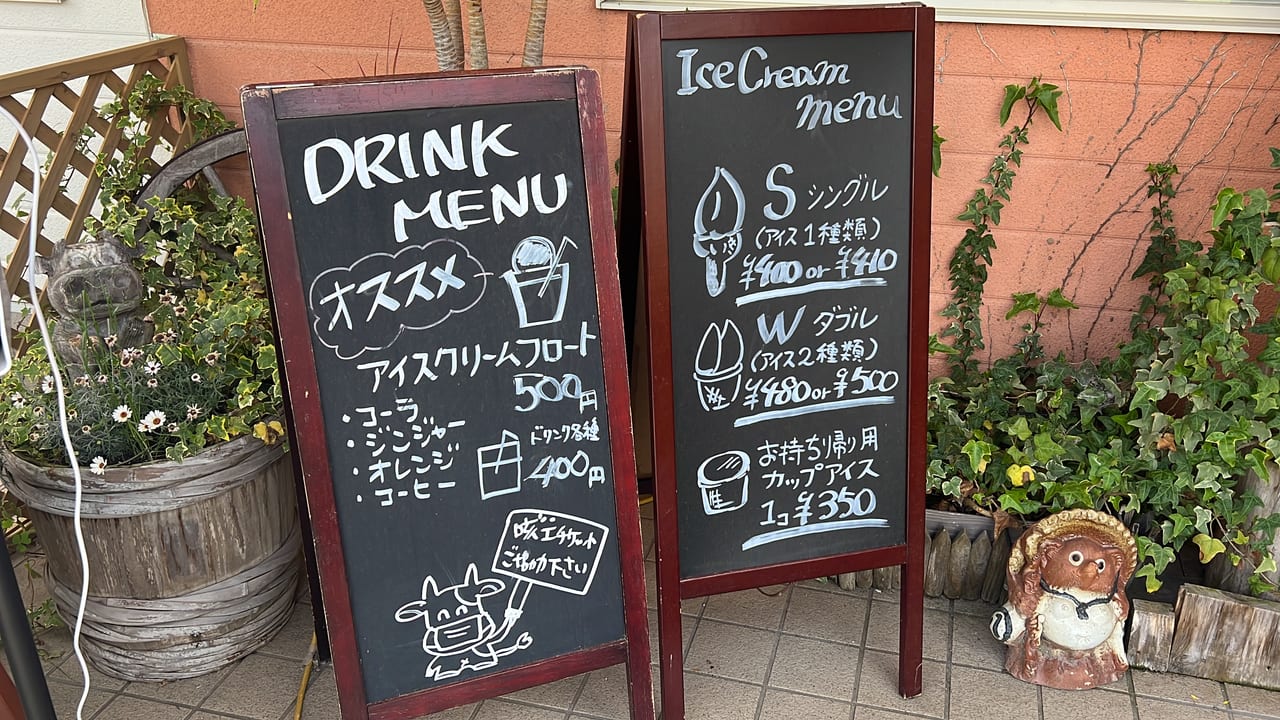 DRINK
MENU
オススメ
アイスクリームフロート
500円
・コーラ
・ジンジャー
・オレンジ
・コーヒー
ドリンク各種
400円
咳エチケット
ご協力下さい
Ice Cream
menu
S シングル
(アイス1種類)
¥400 or ¥410
W ダブル
(アイス2種類)
¥480 or ¥500
お持ち帰り用
カップアイス
1コ ¥350
生